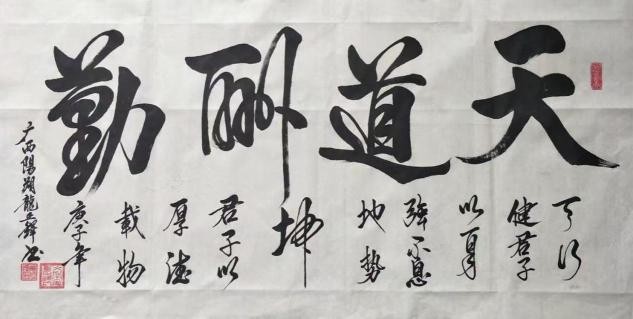 天道酬勤
天行
健君子
以自
强不息
地勢
坤
君子以
厚德
載物
庚子年
广西陽朔龍